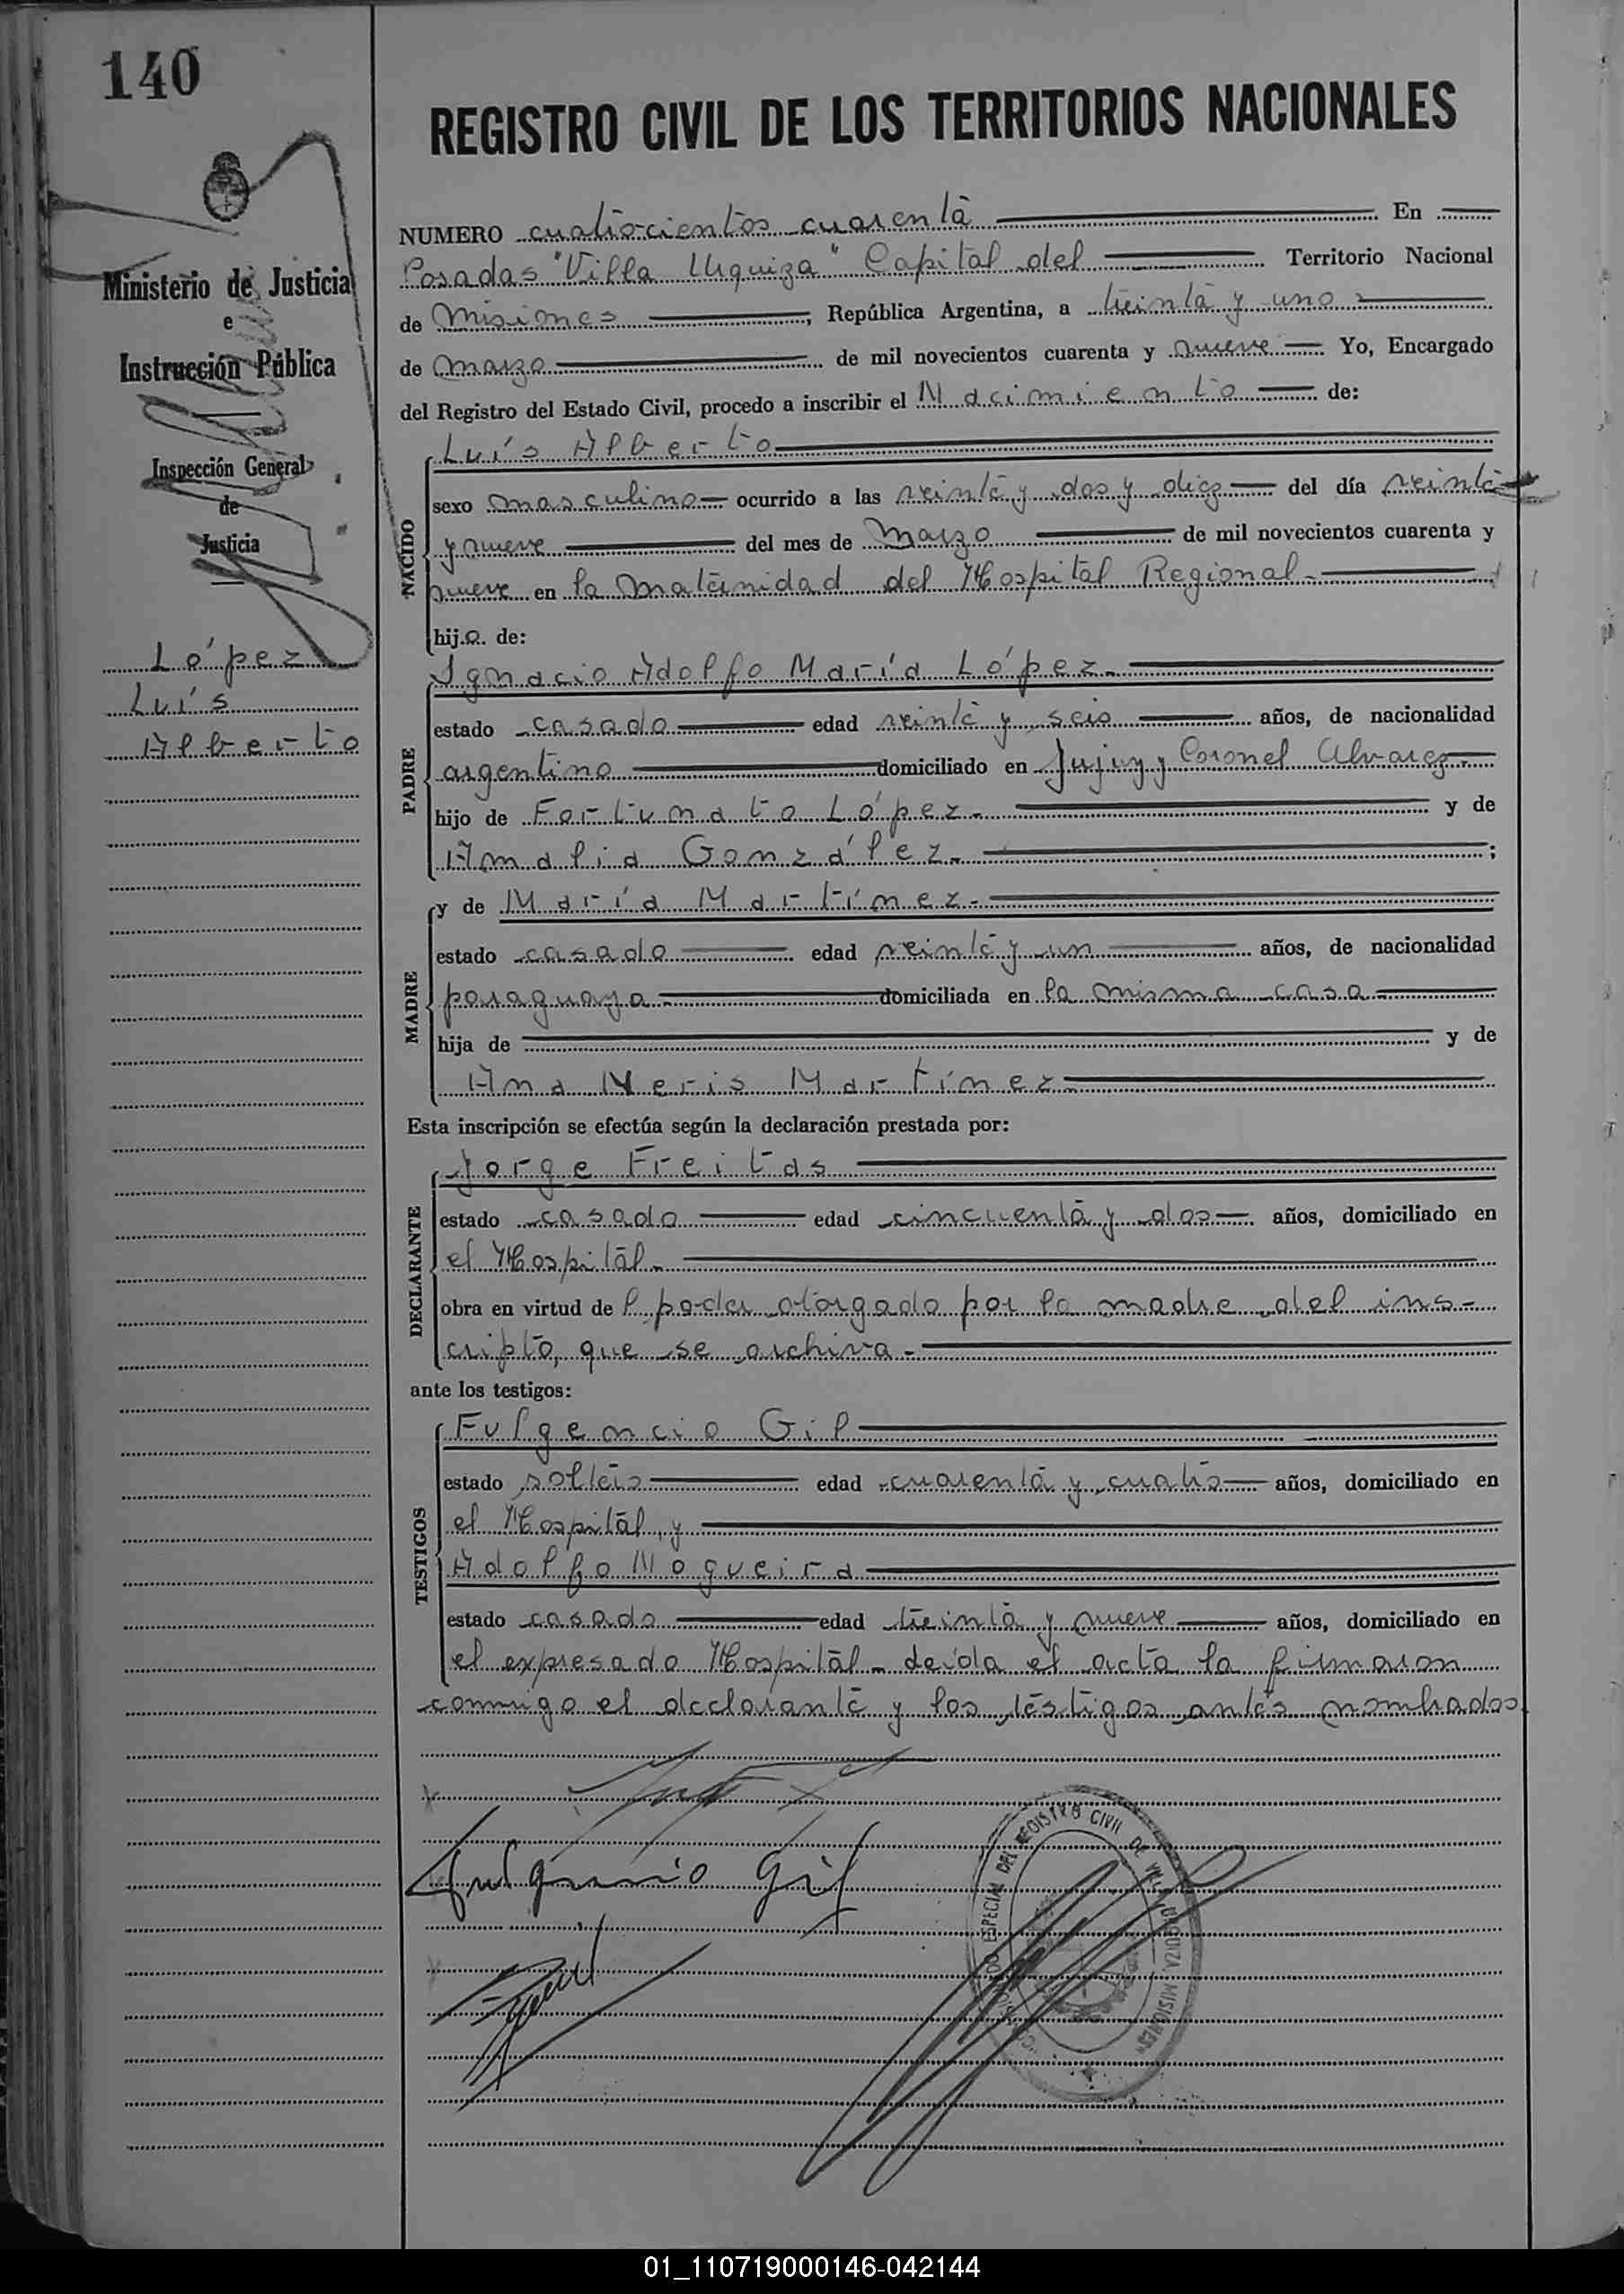 140
REGISTRO CIVIL DE LOS TERRITORIOS NACIONALES
Ministerio de Justicia
e
Instrucción Pública
Inspección General
de
Justicia
López
Luís
Alberto
NUMERO cuatrocientos cuarenta En
Posadas "Villa Urquiza" Capital del Territorio Nacional
de Misiones, República Argentina, a treinta y uno
de Marzo de mil novecientos cuarenta y nueve Yo, Encargado
del Registro del Estado Civil, procedo a inscribir el Nacimiento de:
NACIDO
Luís Alberto
sexo masculino ocurrido a las veinte y dos y diez del día veinte
y nueve del mes de Marzo de mil novecientos cuarenta y
nueve en la Maternidad del Hospital Regional.
hij.o. de:
PADRE
Ignacio Adolfo María López.
estado casado edad veinte y seis años, de nacionalidad
argentino domiciliado en Jujuy y Coronel Alvarez.
hijo de Fortunato López. y de
Amalia González. ;
MADRE
y de María Martínez.
estado casada edad veinte y un años, de nacionalidad
paraguaya domiciliada en la misma casa
hija de y de
Ana Neris Martínez
Esta inscripción se efectúa según la declaración prestada por:
DECLARANTE
Jorge Freitas
estado casado edad cincuenta y dos años, domiciliado en
el Hospital.
obra en virtud del poder otorgado por la madre del ins-
cripto, que se archiva.
ante los testigos:
TESTIGOS
Fulgencio Gil
estado soltero edad cuarenta y cuatro años, domiciliado en
el Hospital, y
Adolfo Nogueira
estado casado edad treinta y nueve años, domiciliado en
el expresado Hospital. leída el acta la firmaron
conmigo el declarante y los testigos antes nombrados
Fulgencio Gil
ESPECIAL DEL REGISTRO CIVIL DE VILLA URQUIZA, MISIONES
01_110719000146-042144